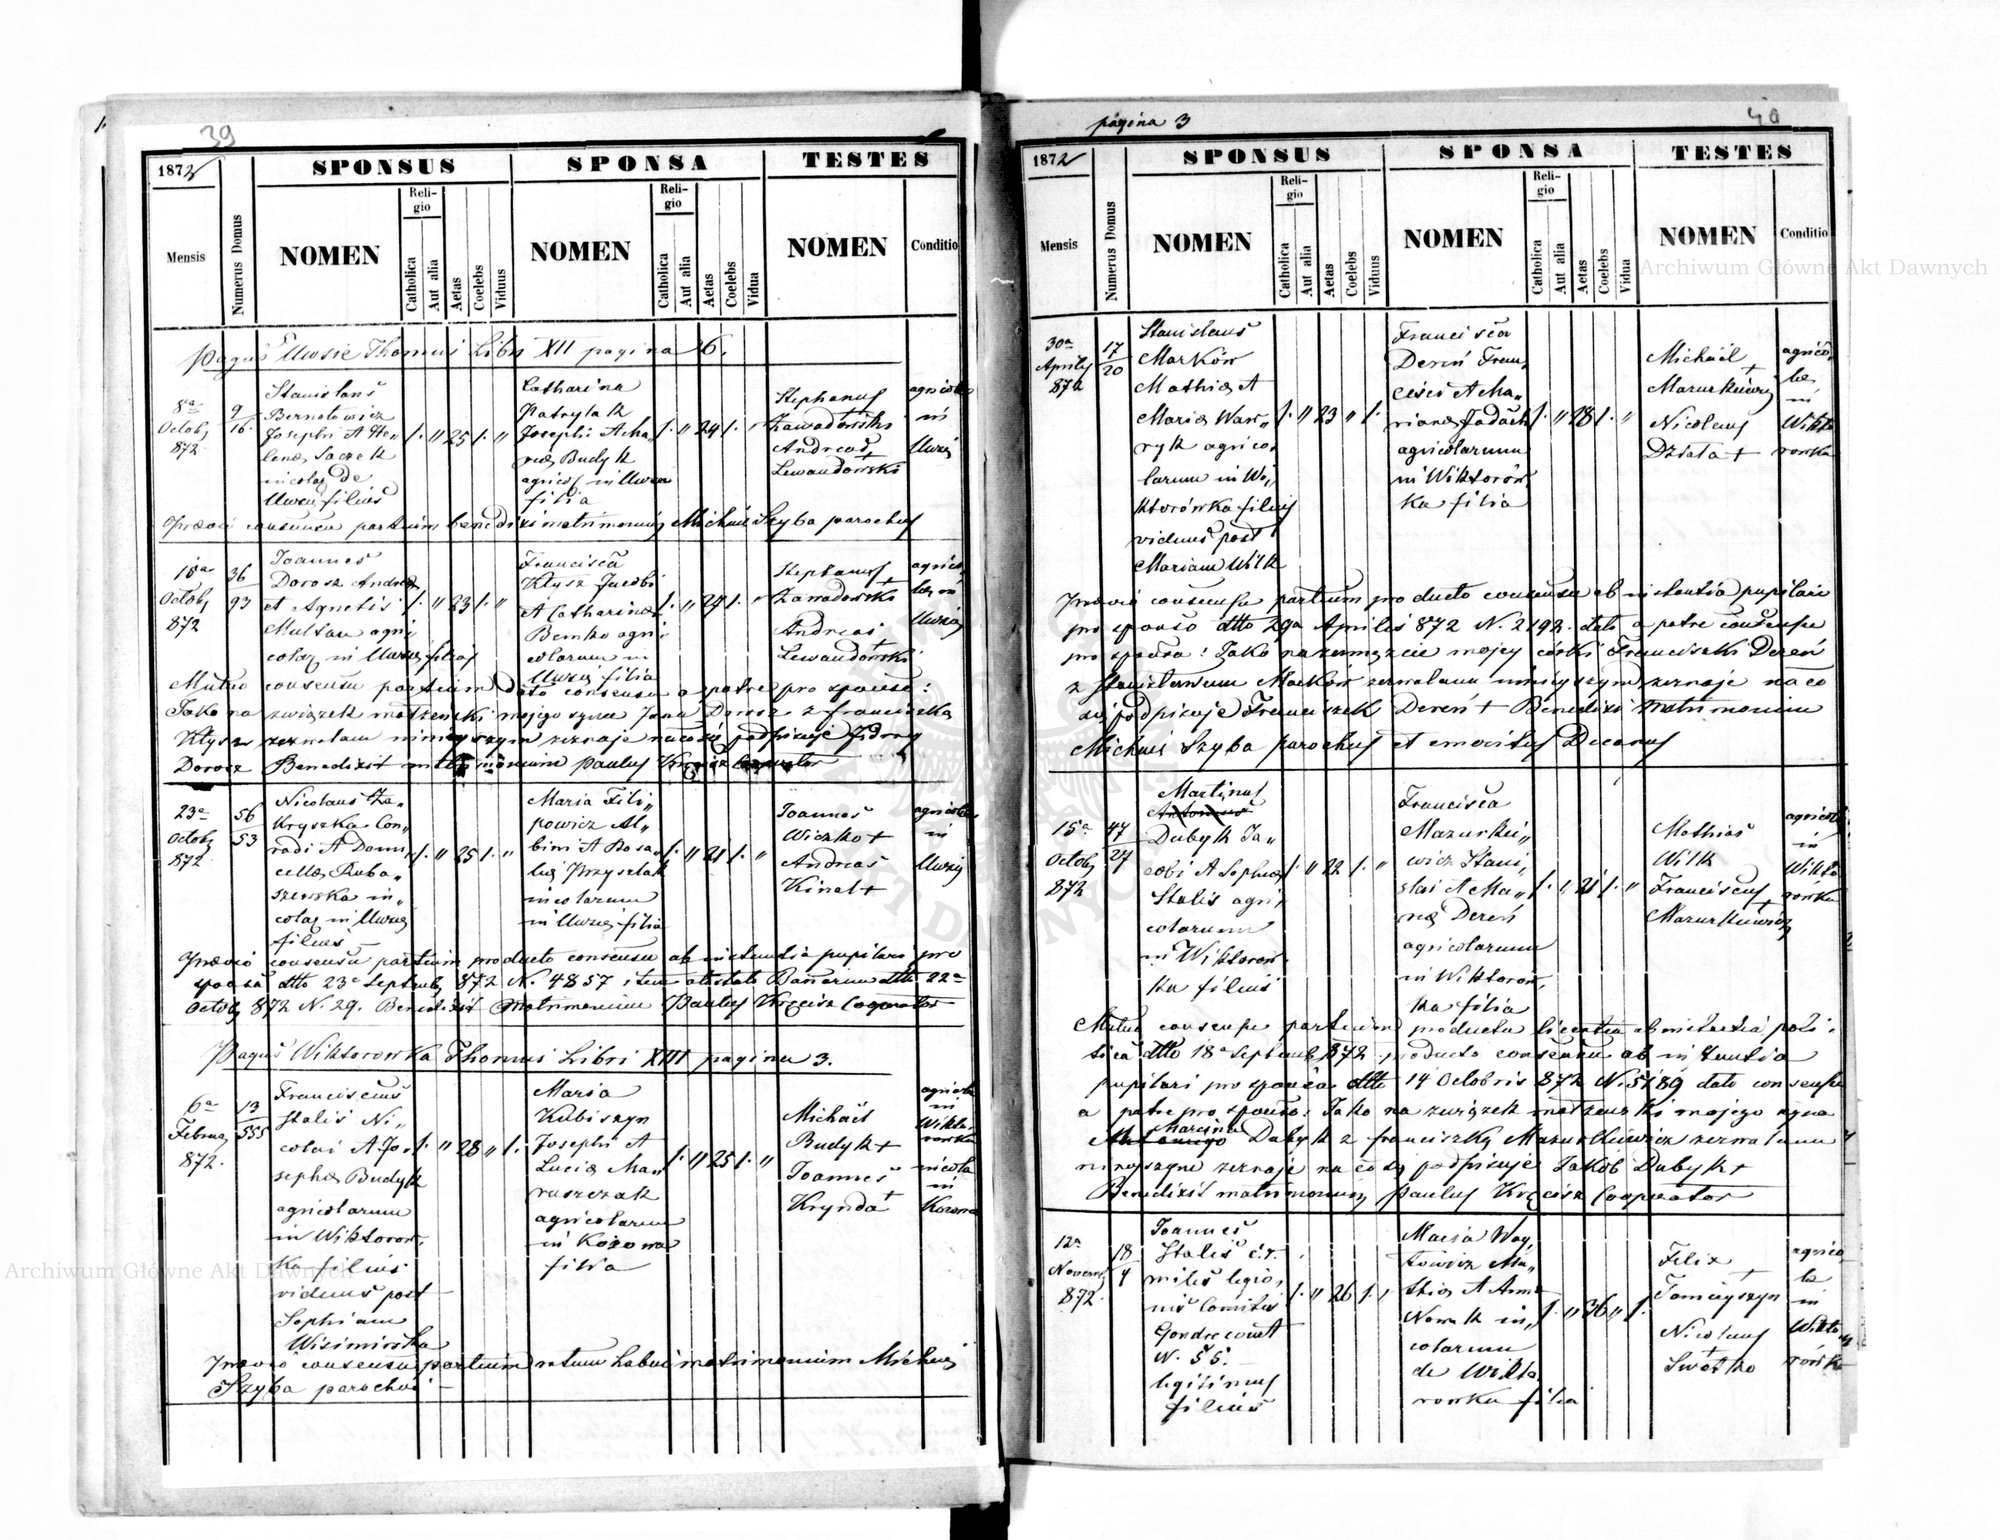 39
1872
SPONSUS
SPONSA
TESTES
Mensis
Numerus Domus
NOMEN
Religio
Catholica
Aut alia
Aetas
Coelebs
Viduus
NOMEN
Religio
Catholica
Aut alia
Aetas
Coelebs
Vidua
NOMEN
Conditio
Pagus Uwsie Thomus Libri XII pagina 6.
8a
Octob
872
9
16
Stanislaus
Bernatowicz
Josephi A He„
lenae Saczek
incolae de
Uwsie filius
1. „ 25 1. „
Catharina
Patrylak
Josephi A Ma„
riae Budyk
agricol in Uwsie
filia
1. „ 24 1. „
Stephanus
+
Zawadowski
Andreas
+
Lewandowski
agricolae
in
Uwsie
Praevio consensu partium benedixi matrimonium Michael Szyba parochus
15a
Octob
872
36
93
Joannes
Dorosz Andreae
et Agnetis
Multan agri
colae in Uwsie filius
1. „ 23 1. „
Francisca
Kłysz Jacobi
A Catharinae
Bemko agri
colarum in
Uwsie filia
1. „ 24 1. „
Stephanus
+
Zawadowski
Andreas
+
Lewandowski
agrico
lae in
Uwsie
Mutuo consensu partium dato consensu a patre pro sponso:
Jako na związek małżeński mojego syna Jana Dorosz z franciszką
Kłysz zezwalam niniejszym zeznaje na co się podpisuje Jędrzej
Dorosz Benedixit matrimonium Paulus Kręcisz Cooperator
23a
Octob
872
56
53
Nicolaus Za„
kryszka Con„
radi A Domi„
cellae Ruba„
szewska in„
colae in Uwsie
filius
1. „ 25 1. „
Maria Fili„
powicz Al„
bini A Rosa„
liae Przysztak
incolarum
in Uwsie filia
1. „ 21 1. „
Joannes
Wiczko +
Andreas
Kinal +
agricolae
in
Uwsie
Praevio consensu partium producto consensu ab instantia pupilari pro
sponsa dtto 23a Septemb 872 N. 4857 item attestato Bannorum dtto 22a
Octob 872 N. 29. Benedixit Matrimonium Paulus Kręcisz Cooperator
Pagus Wiktorowka Thomus Libri XIII pagina 3.
6a
Februa
872.
13
555
Franciscus
Stalis Ni„
colai A Jo„
sephae Budyk
agricolarum
in Wiktorow„
ka filius
viduus post
Sophiam
Wisimirska
1. „ 28 „ 1.
Maria
Kubiszyn
Josephi A
Luciae Ma„
ruszczak
agricolarum
in Kozowa
filia
1. „ 25 1. „
Michaël
Budyk +
Joannes
+
Krynda
agricola
in
Wikto
rowka
incola
in
Kozowa
Praevio consensu partium ratum habui matrimonium Michael
Szyba parochus
pagina 3
40
1872
SPONSUS
SPONSA
TESTES
Mensis
Numerus Domus
NOMEN
Religio
Catholica
Aut alia
Aetas
Coelebs
Viduus
NOMEN
Religio
Catholica
Aut alia
Aetas
Coelebs
Vidua
NOMEN
Conditio
30a
Aprilis
872
17
20
Stanislaus
Marków
Mathiae A
Mariae Waw„
ryk agrico„
larum in Wi„
ktorówka filius
viduus post
Mariam Wilk
1. „ 23 „ 1.
Francisca
Dereń Fran„
cisci A Ma„
rianae Jadach
agricolarum
in Wiktorów
ka filia
1. „ 28 1. „
Michaël
+
Mazurkiewicz
Nicolaus
Działa +
agrico
lae
in
Wikto
rowka
Praevio consensu partium producto consensu ab instantia pupilari
pro sponso dtto 29a Aprilis 872 N. 2192. dato a patre consensu
pro sponsa: Jako na zamążcie mojej córki Franciszki Dereń
z Stanisławem Marków zezwalam niniejszym zeznaje na co
się podpisuje Franciszek Dereń + Benedixi Matrimonium
Michael Szyba parochus et emeritus Decanus
15a
Octob
872
47
27
Martinus
Antonius
Dubyk Ja„
cobi A Sophiae
Stalis agri„
colarum
in Wiktorow„
ka filius
1. „ 22 1. „
Francisca
Mazurkie„
wicz Stani„
slai A Ma„
riae Dereń
agricolarum
in Wiktorow„
ka filia
1. „ 21 1. „
Mathias
Wilk
Franciscus
+
Mazurkiewicz
agricolae
in
Wikto
rówka
Mutuo consensu partium producta licentia ab instantia poli„
tica dtto 18a Septemb 872 producto consensu ab instantia
pupilari pro sponsa dtto 14 Octobris 872 N. 5189 dato consensu
a patre pro sponso: Jako na związek małżenski mojego syna
Marcina
Antoniego Dubyk z franciszką Mazurkiewicz zezwalam
niniejszym zeznaje na co się podpisuje Jakób Dubyk +
Benedixit matrimonium Paulus Kręcisz Cooperator
12a
Novemb
872.
18
4
Joannes
Stalis c.r.
miles legio„
nis Comitis
Gondrecourt
N. 55.
legitimus
filius
1. „ 26 1. „
Maria Woy„
towicz Ma„
thiae A Annae
Nowak in„
colarum
de Wikto
rowka filia
1. „ 36 „ 1.
Felix
+
Tomczyszyn
Nicolaus
+
Swatko
agrico
la
in
Wikto
rowka
Archiwum Główne Akt Dawnych
Archiwum Główne Akt Dawnych